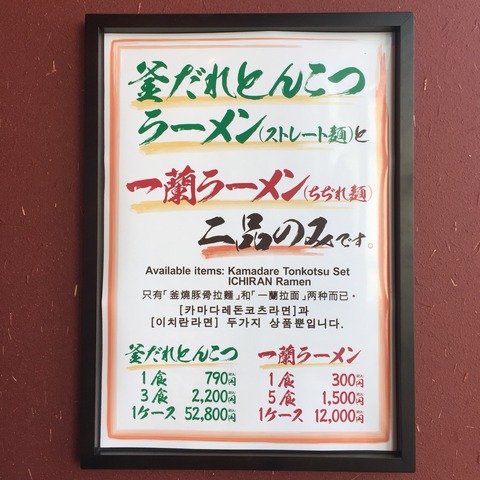 釜だれとんこつ
ラーメン(ストレート麺)と
一蘭ラーメン(ちぢれ麺)
二品のみです。
Available items: Kamadare Tonkotsu Set
ICHIRAN Ramen
只有「釜燒豚骨拉麵」和「一蘭拉面」两种而已。
[카마다레돈코츠라면]과
[이치란라면] 두가지 상품뿐입니다.
釜だれとんこつ
1食 790円
3食 2,200円
1ケース 52,800円
一蘭ラーメン
1食 300円
5食 1,500円
1ケース 12,000円